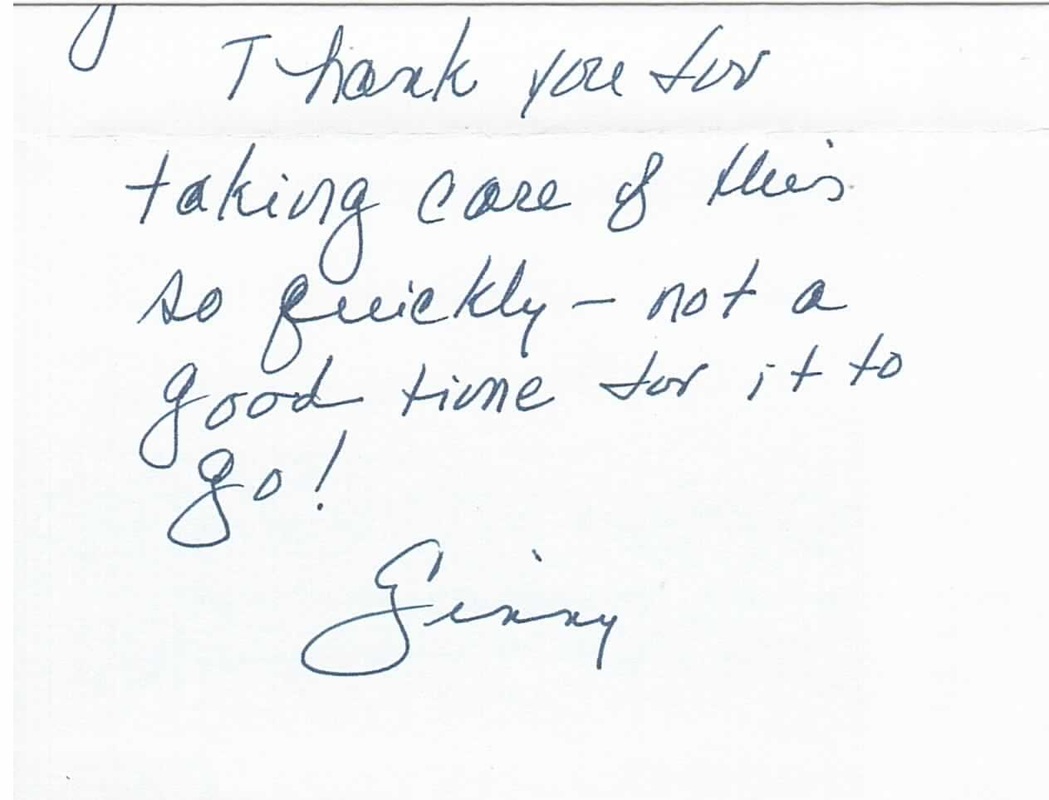 Thank you for
taking care of this
so quickly – not a
good time for it to
go!
Ginny